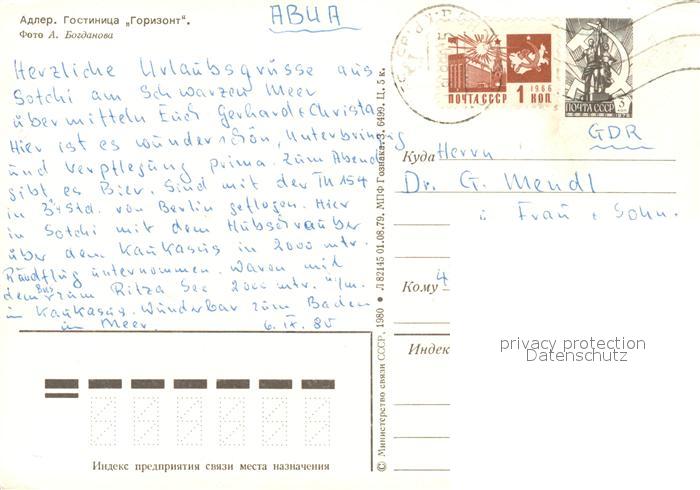 Адлер. Гостиница „Горизонт“.
Фото А. Богданова
АВИА
Herzliche Urlaubsgrüsse aus
Sotchi am Schwarzen Meer
übermitteln Euch Gerhard + Christa
Hier ist es wunderschön, Unterbringung
und Verpflegung prima. Zum Abend
gibt es Bier. Sind mit der TU 154
in 3½ Std. von Berlin geflogen. Hier
in Sotchi mit dem Hubschrauber
über dem Kaukasus in 2000 mtr.
Rundflug unternommen. Waren mit
dem Bus zum Ritza See 2000 mtr. ü/m.
im Kaukasus. Wunderbar zum Baden
im Meer. 6. IX. 80
ПОЧТА СССР 1 КОП.
1966
ПОЧТА СССР 3
1976
GDR
Куда Herrn
Dr. G. Mendl
u Frau + Sohn.
Кому 4
Индек
privacy protection
Datenschutz
Индекс предприятия связи места назначения
© Министерство связи СССР, 1980 ● Л 82145 01.08.79. МПФ Гознака. З. 6499. Ц. 5 к.